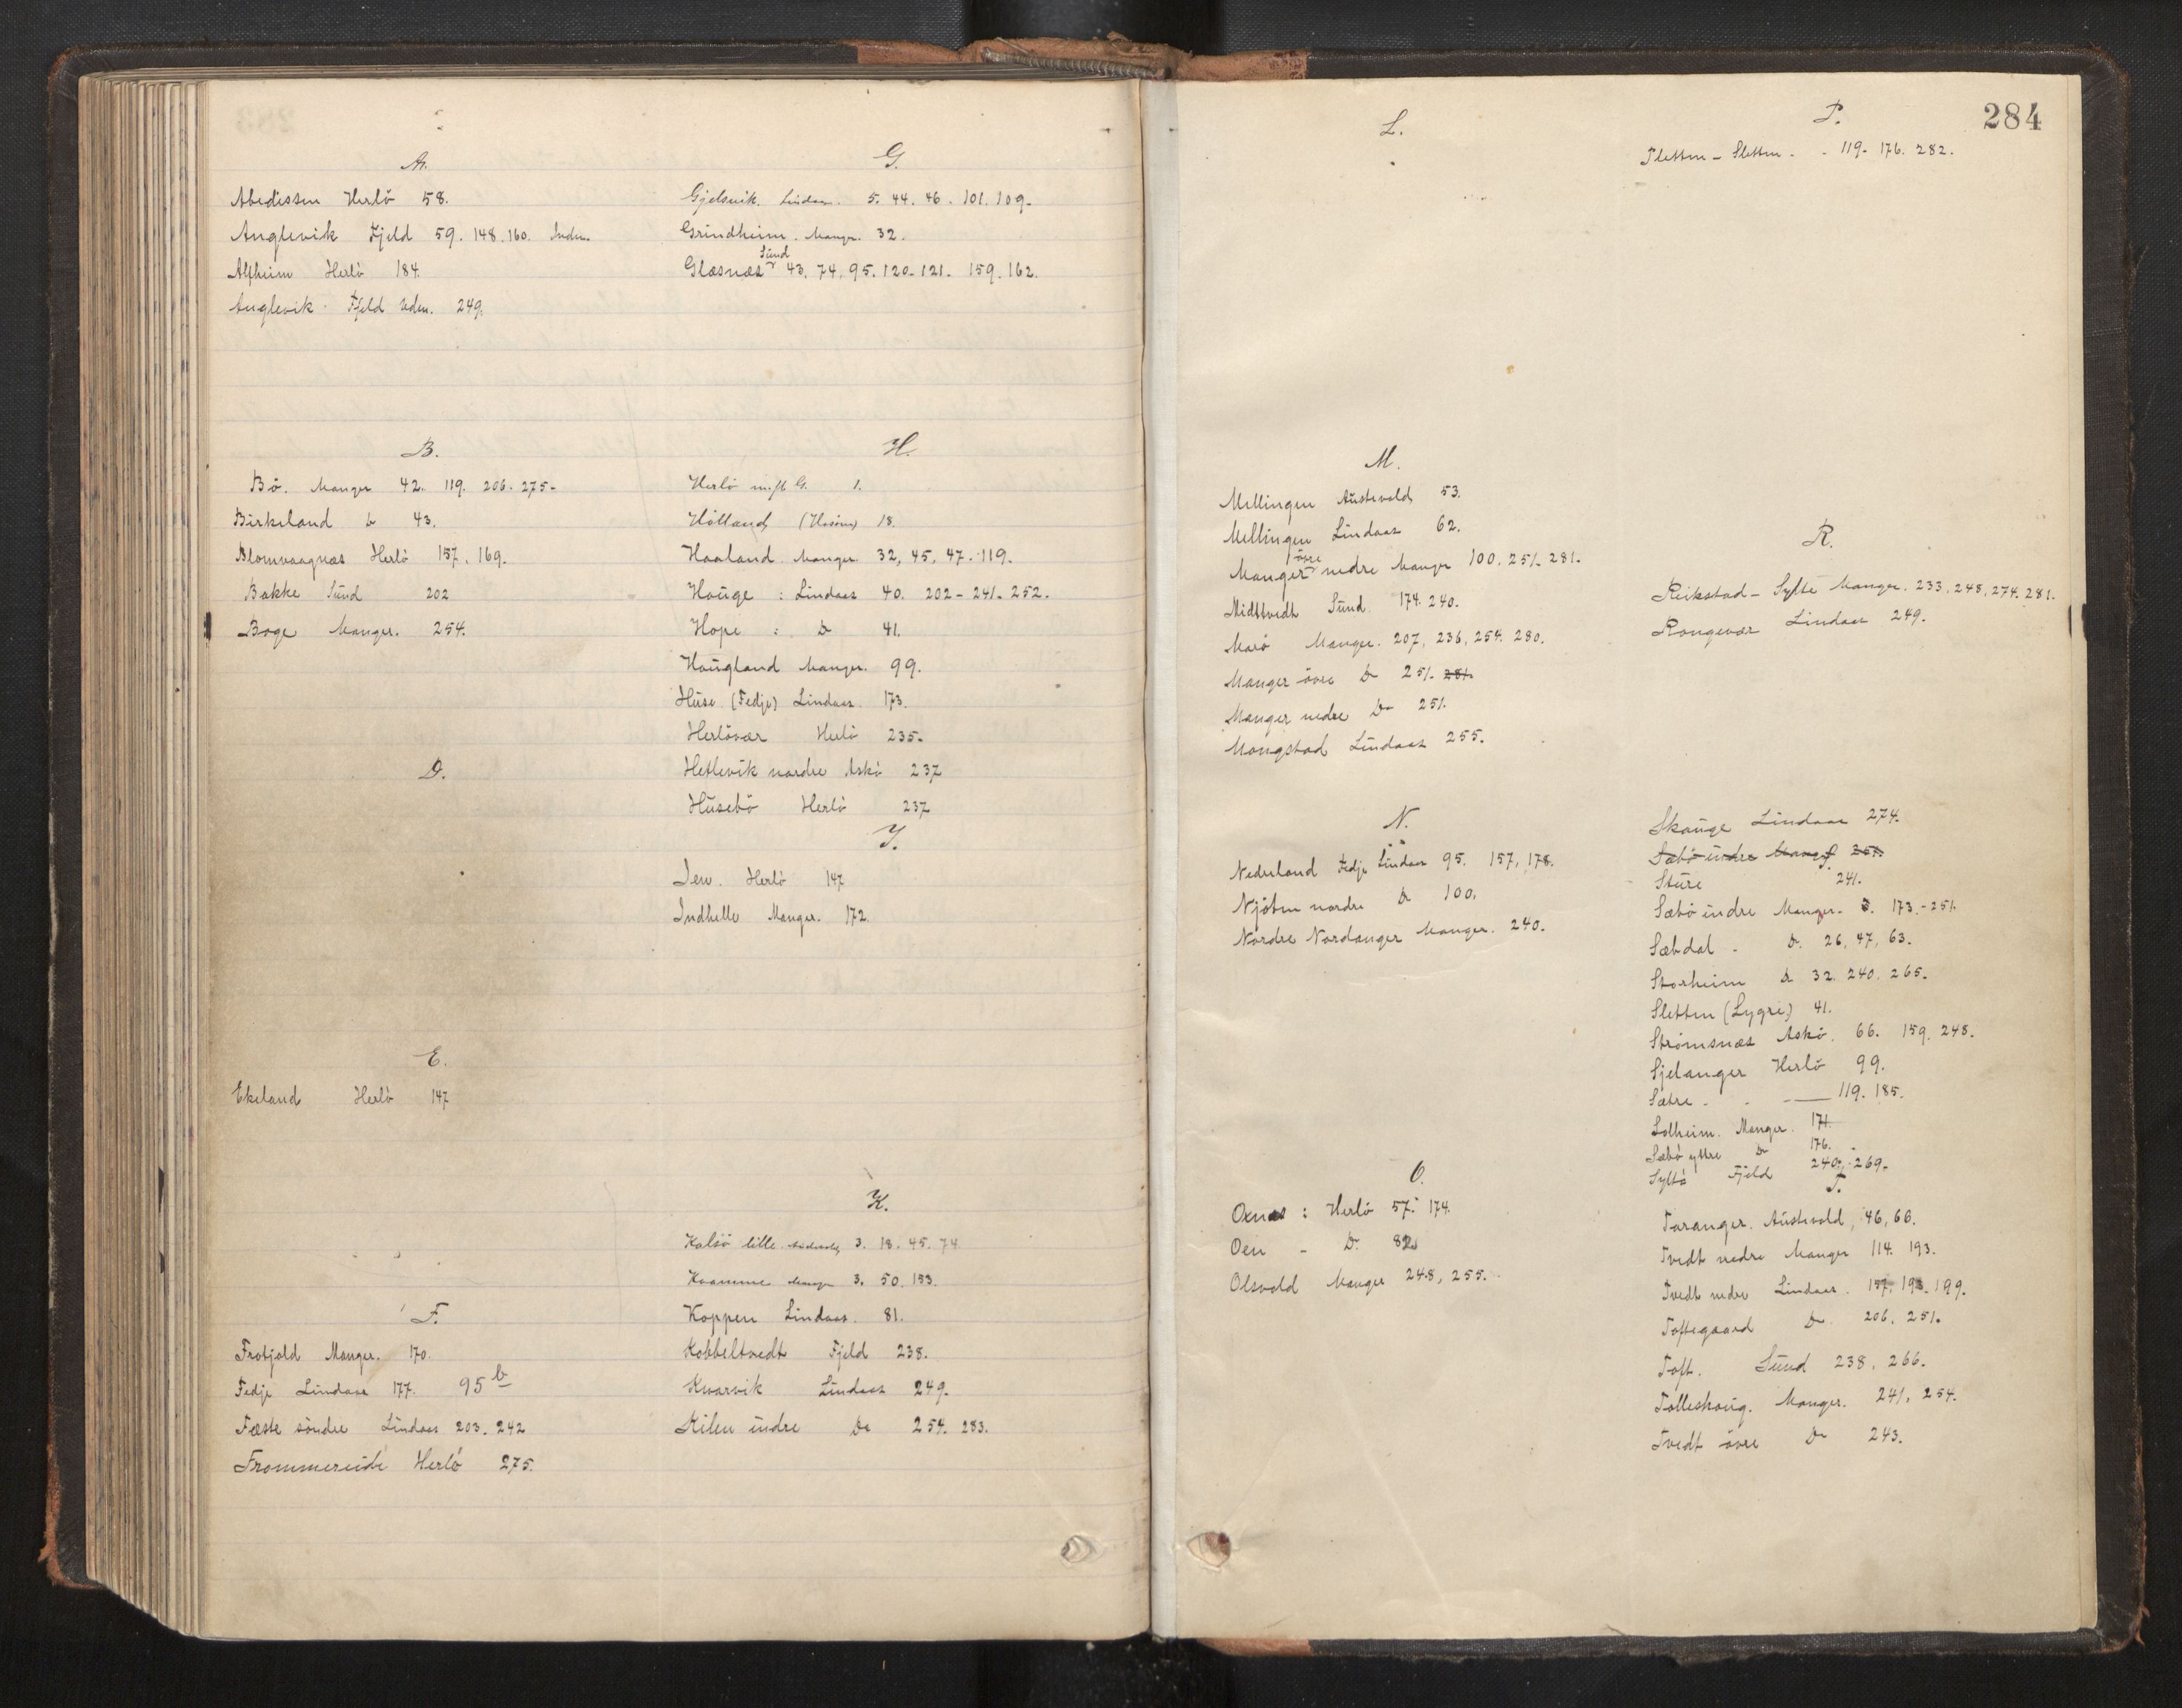 A.
Abedissen Herlö 58.
Anglevik Fjeld 59. 148. 160. Indre.
Alfheim Herlö 184.
Anglevik Fjeld Uden. 249.
B.
Bö. Manger 42. 119. 206. 275-
Birkeland Do 43.
Blomvaagnæs Herlö 157. 169.
Bakke Sund 202
Boge Manger. 254.
D.
E.
Ekeland Herlö 147
F.
Frotjold Manger. 170.
Fedje Lindaas 177. 95 b
Fæste söndre Lindaas 203. 242
Frommereide Herlö 275.
G.
Gjelsvik. Lindaas. 5. 44. 46. 101. 109-
Grindheim. Manger. 32.
Sund
Glæsnæs 43. 74. 95. 120-121- 159. 162.
H.
Herlö 1.
Hölland 18.
Haaland. Manger. 32, 45, 47. 119.
Hauge : Lindaas 40. 202- 241- 252.
Hope : Do 41.
Haugland Manger. 99.
Huse (Fedje) Lindaas. 173.
Herlövær Herlö 235.
Hetlevik nordre Askö 237
Husebö Herlö 237
I.
Herlö 147
Indhelle Manger. 172
K.
Kalsö lille 3. 18. 45. 74
Kvamme Manger 3. 50. 153.
Koppen Lindaas. 81.
Kobbeltvedt Fjeld 238.
Kvarvik Lindaas 249.
Kilen indre Do 254. 283.
284
L.
M.
Mellingen Austevold 53.
Mellingen Lindaas 62.
övre
Manger nedre Manger 100. 251. 281.
Midttvedt Sund. 174. 240.
Marö Manger. 207, 236, 254. 280.
Manger övre Do 251. 281.
Manger nedre Do 251.
Mongstad Lindaas 255.
N.
Nederland Fedje Lindaas 95. 157, 178.
Njöten nordre Do 100.
Nordre Nordanger Manger. 240.
O.
Oxnæs : Herlö 57. 174.
Oen - Do 82
Olsvold Manger 248, 255.
P.
Pletten - Sletten - 119- 176. 282.
R.
Reikstad - Sylte Manger. 233, 248, 274. 281.
Rongevær Lindaas 249.
Skauge Lindaas 274.
S.
Sæbö indre Manger 251.
Sture 241.
Sæbö indre Manger. 173.-251.
Sæbdal - Do. 26, 47, 63.
Storheim Do 32. 240. 265.
Sletten (Lygre) 41.
Strömsnæs Askö. 66. 159. 248.
Sjelanger Herlö 99.
Sætre - - — 119. 185.
Solheim. Manger. 171.
Sæbö yttre Do 176.
Syltö Fjeld 240. 269.
T.
Toranger. Austevold, 46, 66.
Tvedt nedre Manger 114. 193.
Tvedt nedre Lindaas. 157. 193. 199.
Toftegaard Do 206. 251.
Toft. Sund 238, 266.
Tolleshaug. Manger. 241, 254.
Tvedt övre Do 243.